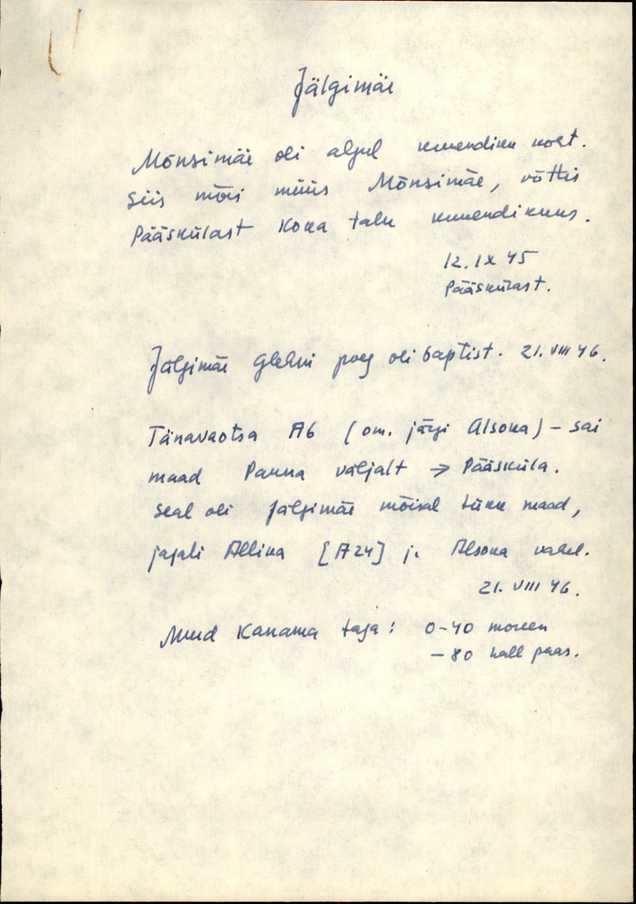 Jälgimäe
Mõnsimäe oli algul kunendiku koht.
Siis mõis müüs Mõnsimäe, võttis
Pääskülast Koka talu kunendikuus.
12. IX 45
Pääskülast.
Jälgimäe poeg oli baptist. 21. VIII 46.
Tänavaotsa A6 (om. järgi Alsoka) – sai
maad Panna väljalt → Pääsküla.
Seal oli Jälgimäe mõisal tükk maad,
jagati Allika [A24] j. Alsoka vahel.
21. VIII 46.
Muud Kanama taga: 0-40 moreen
– 80 hall paas.